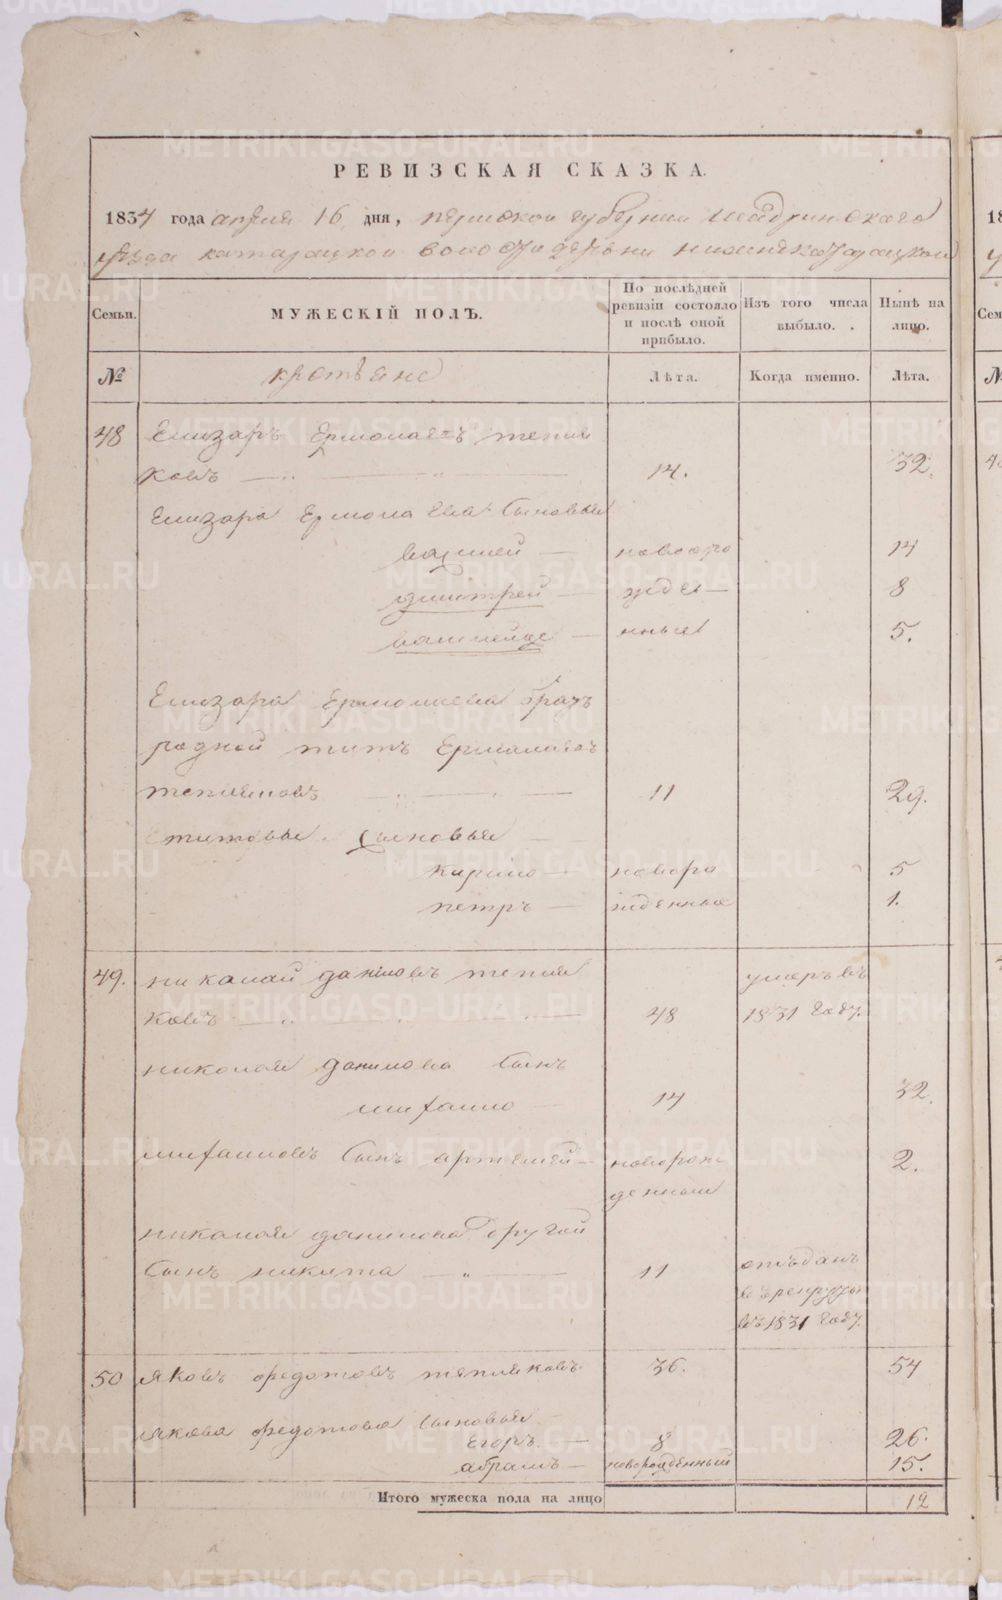 РЕВИЗСКАЯ СКАЗКА.
1834 года апреля 16 дня, пермской губернии Шадринского
уезда катарацкой волости деревни нижнекатарацкой
Семьи. МУЖЕСКІЙ ПОЛЪ. По послѣдней ревизіи состояло и послѣ оной прибыло. Изъ того числа выбыло. Нынѣ на лицо.
№ крестьяне Лѣта. Когда именно. Лѣта.
48 Елизаръ Ермолаевъ тепля
ковъ 14. 32.
Елизара Ермолаева Сыновья
василей новоро 14
дмитрей жде 8
нные 5.
Елизара Ермолаева братъ
родной титъ Ермолаевъ
тепляковъ 11 29.
титовы Сыновья
кирило новоро 5
петръ жденныя 1.
49. николай даниловъ тепля умеръ въ
ковъ 48 1831 году.
николая данилова Сынъ
михайло 14 32.
михайловъ Сынъ артемей новорож 2.
денный
николая данилова другой
Сынъ никита 11 отъданъ
в рекруты
въ 1831 году.
50 яковъ федотовъ тепляковъ 36. 54
якова федотова Сыновья
Егоръ 8 26.
абрамъ новорожденный 15.
Итого мужеска пола на лицо 12
METRIKI.GASO-URAL.RU